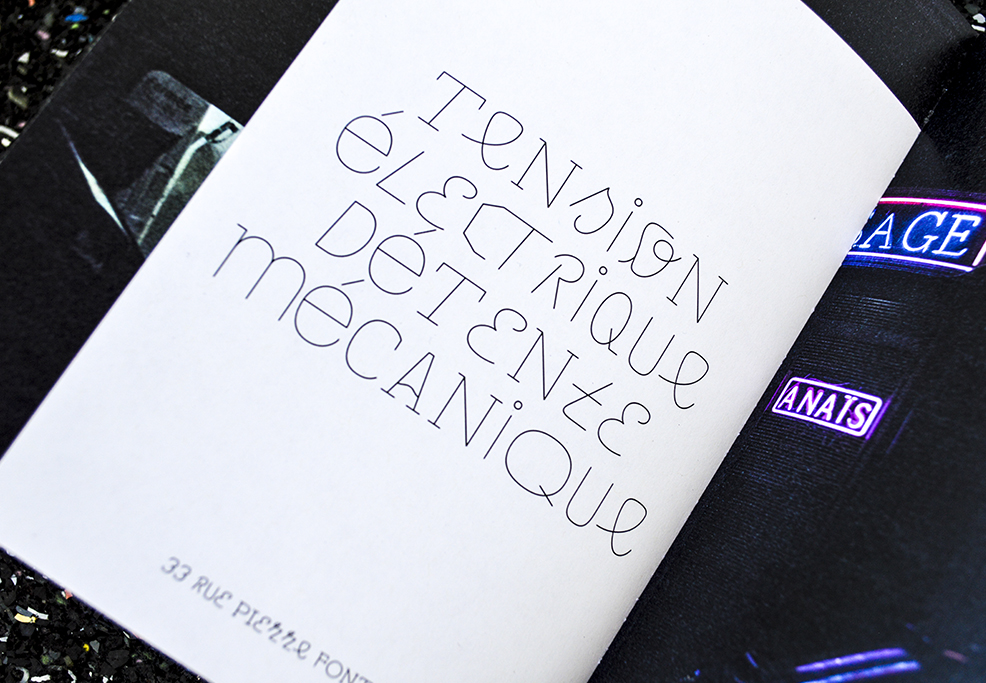 TENSION
ÉLECTRIQUE
DÉTENTE
MÉCANIQUE
33 RUE PIERRE
ANAÏS